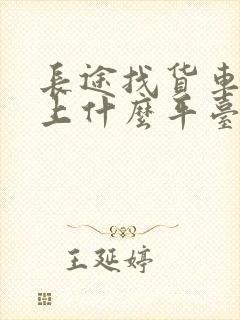 長途找货車
上什麼平臺
王延婷